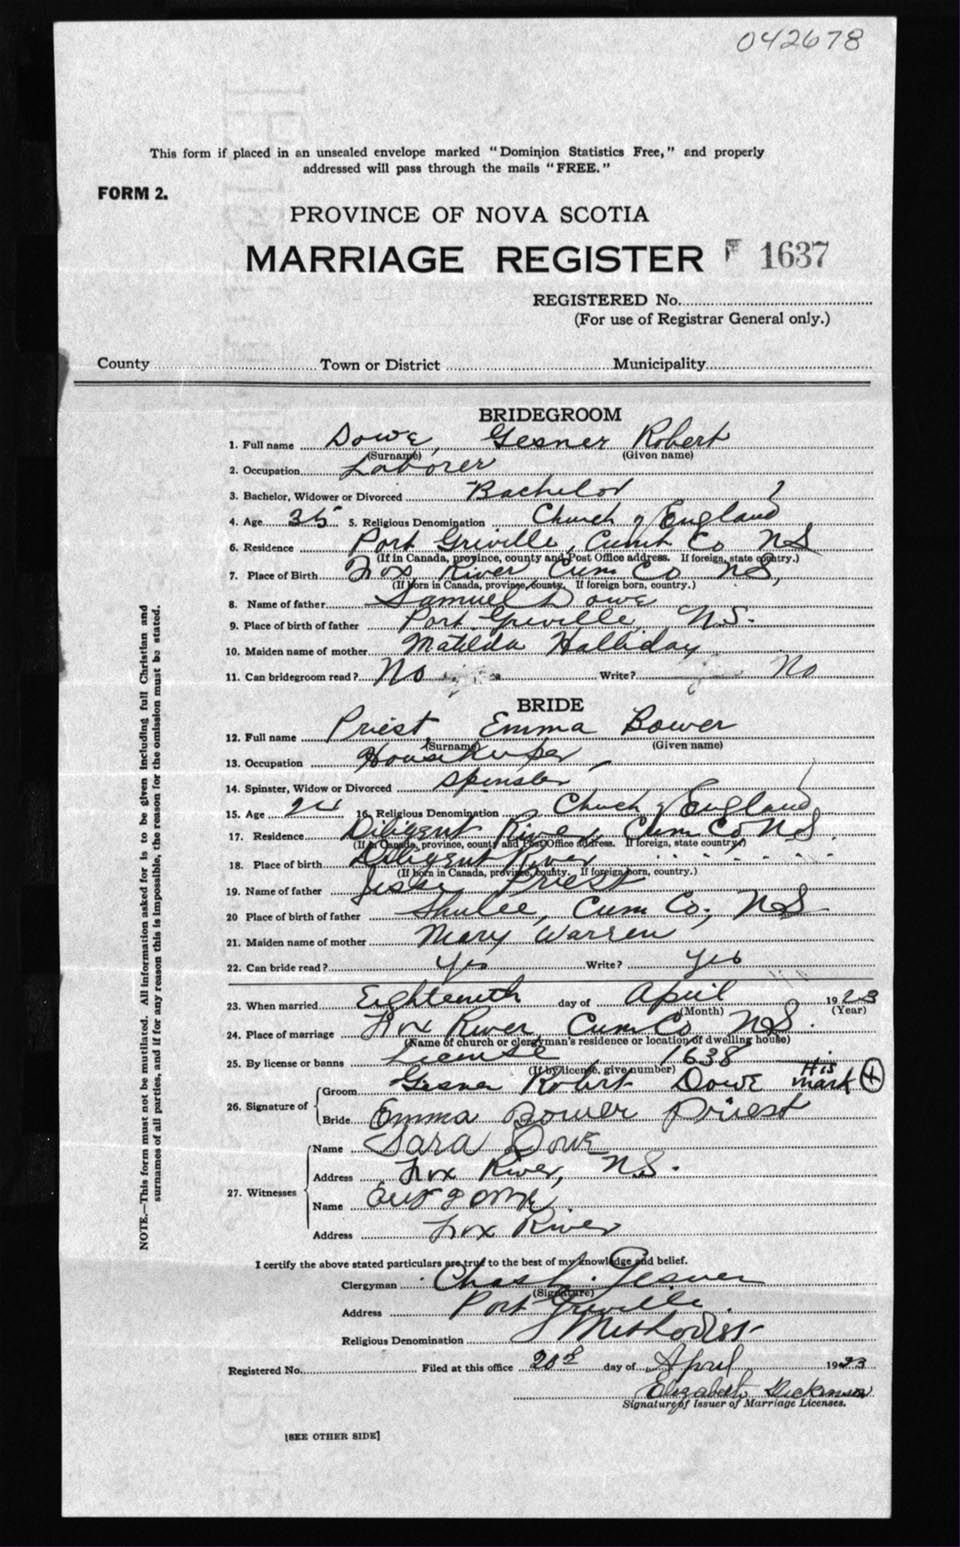 042678
This form if placed in an unsealed envelope marked "Dominion Statistics Free," and properly
addressed will pass through the mails "FREE."
FORM 2.
PROVINCE OF NOVA SCOTIA
MARRIAGE REGISTER F 1637
REGISTERED No.
(For use of Registrar General only.)
County Town or District Municipality
BRIDEGROOM
1. Full name Dowe, Gesner Robert
(Surname) (Given name)
2. Occupation Laborer
3. Bachelor, Widower or Divorced Bachelor
4. Age 35 5. Religious Denomination Church of England
6. Residence Port Greville, Cumb Co NS
(If in Canada, province, county and Post Office address. If foreign, state country.)
7. Place of Birth Fox River Cum Co NS,
(If born in Canada, province, county. If foreign born, country.)
8. Name of father Samuel Dowe
9. Place of birth of father Port Greville, NS.
10. Maiden name of mother Matilda Halliday
11. Can bridegroom read? No Write? No
BRIDE
12. Full name Priest, Emma Bower
(Surname) (Given name)
13. Occupation Housekeeper
14. Spinster, Widow or Divorced Spinster
15. Age 24 16. Religious Denomination Church of England
17. Residence Diligent River, Cum Co NS.
(If in Canada, province, county and Post Office address. If foreign, state country.)
18. Place of birth Diligent River " " " "
(If born in Canada, province, county. If foreign born, country.)
19. Name of father Priest
20 Place of birth of father Shulee, Cum Co, NS
21. Maiden name of mother Mary Warren
22. Can bride read? Yes Write? Yes
23. When married Eighteenth day of April 1923
(Month) (Year)
24. Place of marriage Fox River Cum Co NS.
(Name of church or clergyman's residence or location of dwelling house)
25. By license or banns License 1638
(If by license, give number)
26. Signature of Groom Gesner Robert Dowe His mark +
Bride Emma Bower Priest
27. Witnesses Name Sara Dowe
Address Fox River, NS.
Name
Address Fox River
I certify the above stated particulars are true to the best of my knowledge and belief.
Clergyman Chas. Gesner
(Signature)
Address Port Greville.
Religious Denomination Methodist
Registered No. Filed at this office 20th day of April 1923
Elizabeth Dickinson
Signature of Issuer of Marriage Licenses.
[SEE OTHER SIDE]
NOTE.—This form must not be mutilated. All information asked for is to be given including full Christian and
surnames of all parties, and if for any reason this is impossible, the reason for the omission must be stated.